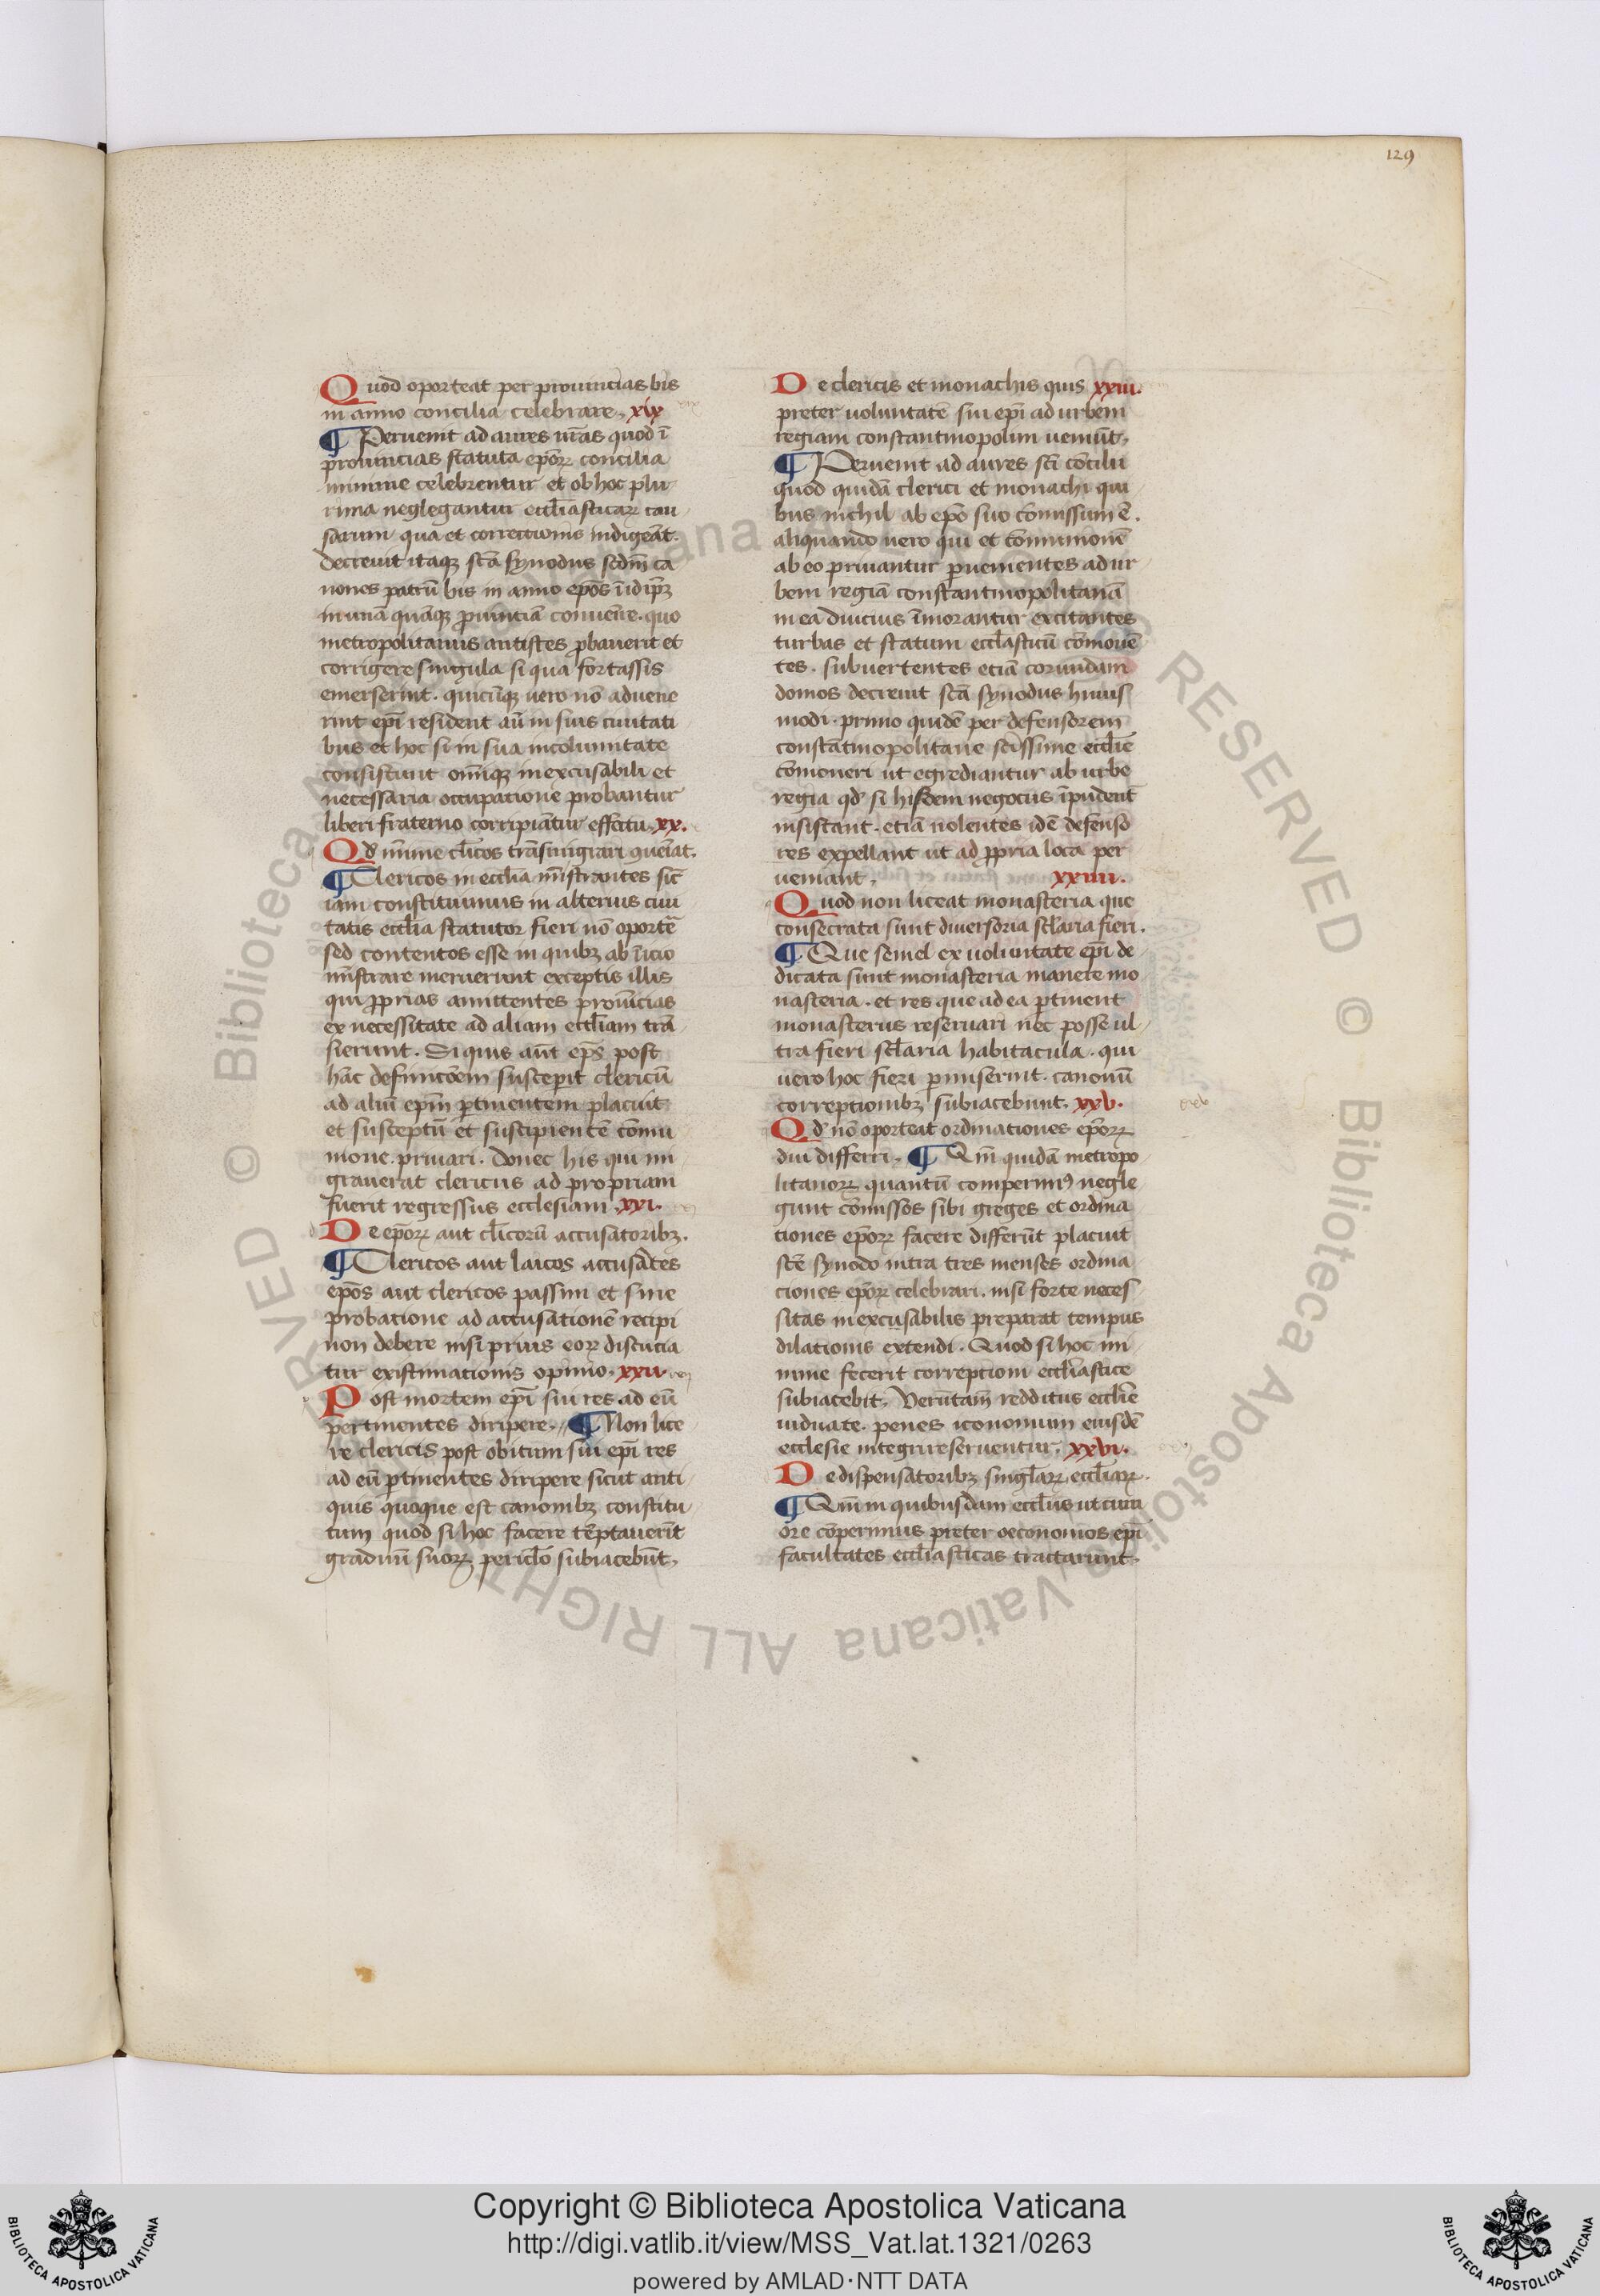 129
Quod oporteat per prouincias bis
in anno concilia celebrare. xix
¶ Peruenit ad aures nr̄as quod ī
prouincias statuta ep̄oꝝ concilia
minime celebrentur et ob hoc plu
rima neglegantur eccl̄iasticaꝝ cau
sarum qua et correctionis indigeāt.
decreuit itaqꝫ sc̄a synodus sedm̄ ca
nones patrū bis in anno ep̄os ī idip̄ꝫ
in unā quāqꝫ ꝓuinciā conuenīre. quo
metropolitanus antistes ꝓbauerit et
corrigere singula si qua fortassis
emerserint. quicūqꝫ uero nō aduene
rint ep̄i resident aū in suis ciuitati
bus et hoc si in sua incolumitate
consistunt om̄iqꝫ inexcusabili et
necessaria occupatione probantur
liberi fraterno corripiāntur effectu. xx.
Qd̓ mīme cl̄icos trāsmigrari ꝯueīat.
¶ Clericos in eccl̄ia mīstrantes sic̄
iam constituimus in alterius ciui
tatis eccl̄ia statutor fieri nō oportē
sed contentos esse in quibꝫ ab īicio
mīstrare meruerunt exceptis illis
qui ꝓprias amittentes prouīcias
ex necessitate ad aliam eccl̄iam trā
sierunt. Si quis aūt ep̄s post
hāc defincōem susceperit clericū
ad aliū ep̄m ꝑtinentem placuit
et susceptū et suscipientē cōmu
nione priuari. donec his qui mi
grauerat clericus ad propriam
fuerit regressus ecclesiam. xxi.
De ep̄oꝝ aut cl̄icorū accusatoribꝫ.
¶ Clericos aut laicos accusātes
ep̄os aut clericos passim et sine
probatione ad accusationē recipi
non debere nisi prius eoꝝ discucia
tur existimationis opinio. xxii
Post mortem ep̄i sui res ad eū
pertinentes diripere. ¶ Non lice
re clericis post obitum sui ep̄i res
ad eū ꝑtinentes diripere sicut anti
quis quoque est canonibꝫ constitu
tum quod si hoc facere tēptauerīt
graduū suoꝝ pericl̄o subiacebūt.
De clericis et monachis quis xxiii.
preter uoluntatē sui ep̄i ad urbem
regiam constantinopolim ueniūt.
¶ Peruenit ad aures sc̄i cōcilii
quod quidā clerici et monachi qui
bus nichil ab ep̄o suo cōmissum ē.
aliquando uero qui et cōmunionē
ab eo priuantur ꝑuenientes ad ur
bem regiā constantinopolitanā
in ea diucius īmorantur excitantes
turbas et statum eccl̄iasticū cōmouē
tes. subuertentes etiā corundam
domos decreuit sc̄a synodus huius
modi. primo quidē per defensorem
constātinopolitane sc̄issime eccl̄ie
cōmoneri ut egrediantur ab urbe
regia qd̓ si hisdem negociis īpudent̄
insistant. etiā nolentes idē defenso
res expellant ut ad ꝓpria loca per
ueniant. xxiiii.
Quod non liceat monasteria que
consecrata sunt diuersoria sc̄laria fieri.
¶ Que semel ex uoluntate ep̄i de
dicata sunt monasteria manere mo
nasteria. et res que ad ea ꝑtinent
monasteriis reseruari nec posse ul
tra fieri sc̄laria habitacula. qui
uero hoc fieri ꝑmiserint. canonū
correptionibꝫ subiacebunt. xxv.
Qd̓ nō oporteat ordinationes ep̄oꝝ
diu differri. ¶ Qm̄ quidā metropo
litanoꝝ quantū comperimꝰ negle
gunt cōmissos sibi greges et ordina
tiones ep̄oꝝ facere differūt placuit
sc̄e synodo intra tres menses ordina
ciones ep̄oꝝ celebrari. nisi forte neces
sitas inexcusabilis preparat tempus
dilationis extendi. Quod si hoc mi
nime fecerit correptioni eccl̄iastice
subiacebit. Verūtam̄ redditus eccl̄ie
uiduate. penes iconomum eiusdē
ecclesie integri reseruentur. xxvi.
De dispensatoribꝫ singl̄aꝝ eccl̄iaꝝ.
¶ Qm̄ in quibusdam eccl̄iis ut cum
ore cōperimus preter oeconomos ep̄i
facultates eccl̄iasticas tractarunt.
© Biblioteca Apostolica Vaticana ALL RIGHTS RESERVED
Copyright © Biblioteca Apostolica Vaticana
http://digi.vatlib.it/view/MSS_Vat.lat.1321/0263
powered by AMLAD·NTT DATA
BIBLIOTECA APOSTOLICA VATICANA
BIBLIOTECA APOSTOLICA VATICANA